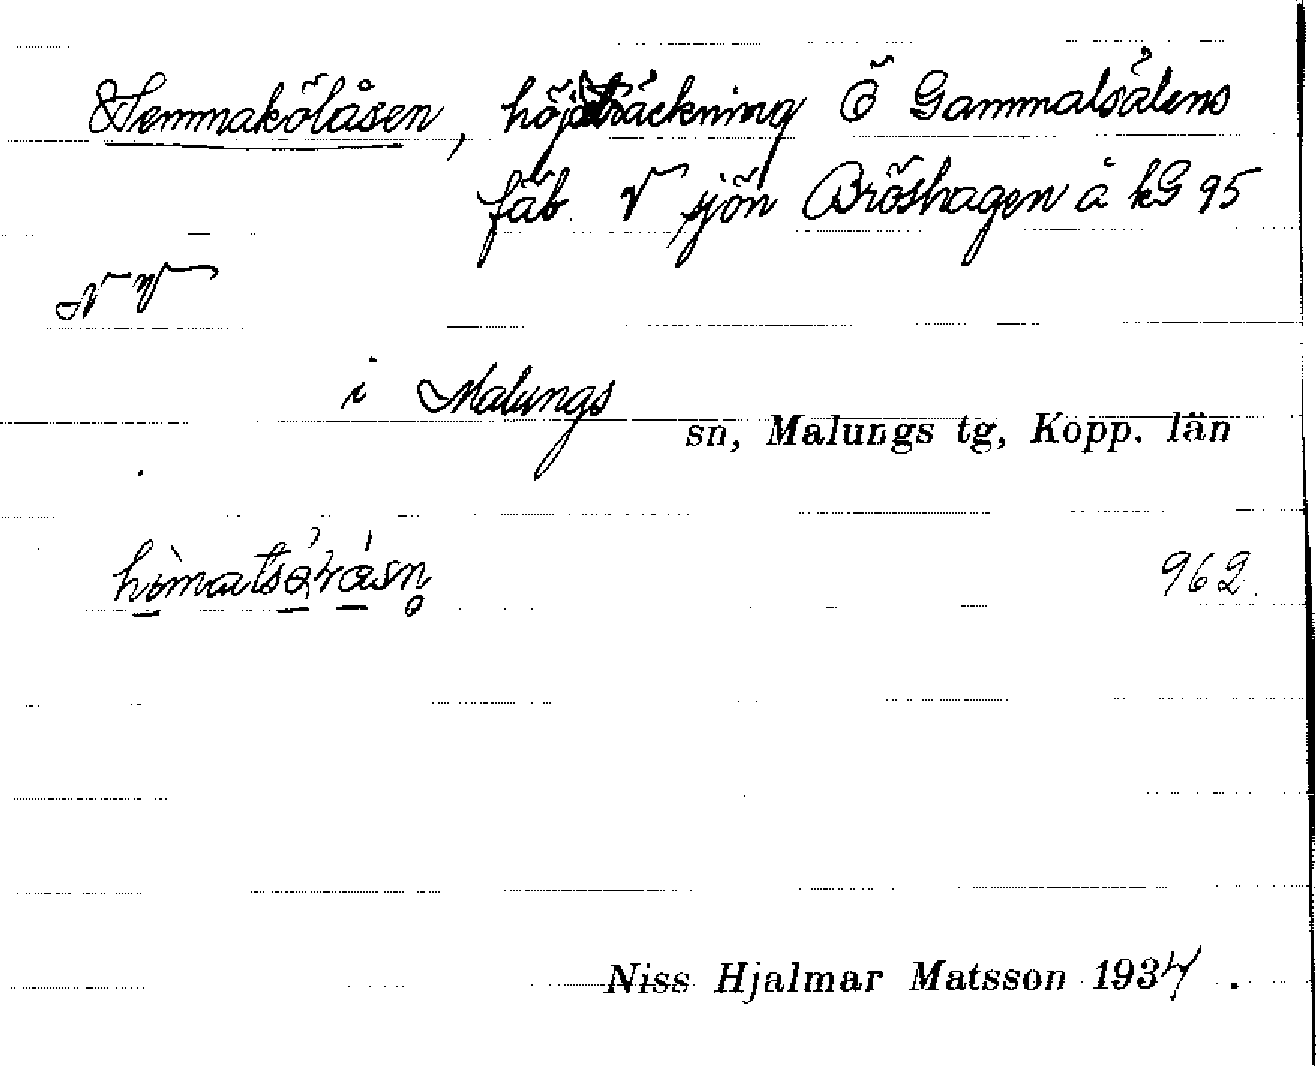 Hemmakölåsen, höjdsträckning Ö Gammalsälens
fäb. V sjön Bröshagen å kG 95
NV
i Malungs
sn, Malungs tg, Kopp. län
962.
Niss Hjalmar Matsson 1934.